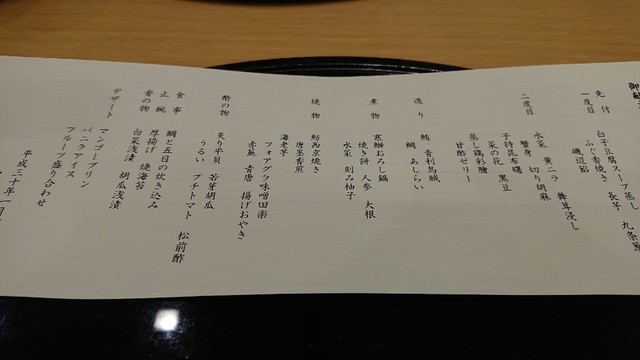 先付
一度目
白子豆腐スープ蒸し 九条葱
ふぐ香焼き 長芋
磯辺餡
二度目
水菜 黄ニラ 舞茸浸し
蟹身 切り胡麻
子持昆布曙
菜の花 黒豆
蒸し鶏彩膾
甘酢ゼリー
造り
鮪 青利烏賊
鯛 あしらい
煮物
寒鰤おろし鍋
焼き餅 人参 大根
水菜 刻み柚子
焼物
魴西京焼き
唐墨香煎
海老芋
フォアグラ味噌田楽
赤蕪 青唐 揚げおやき
酢の物
炙り平貝 若芽胡瓜
うるい プチトマト 松前酢
食事
鯛と五目の炊き込み
止椀
厚揚げ 焼海苔
香の物
白菜浅漬 胡瓜浅漬
デザート
マンゴープリン
バニラアイス
フルーツ盛り合わせ
平成三十年一月